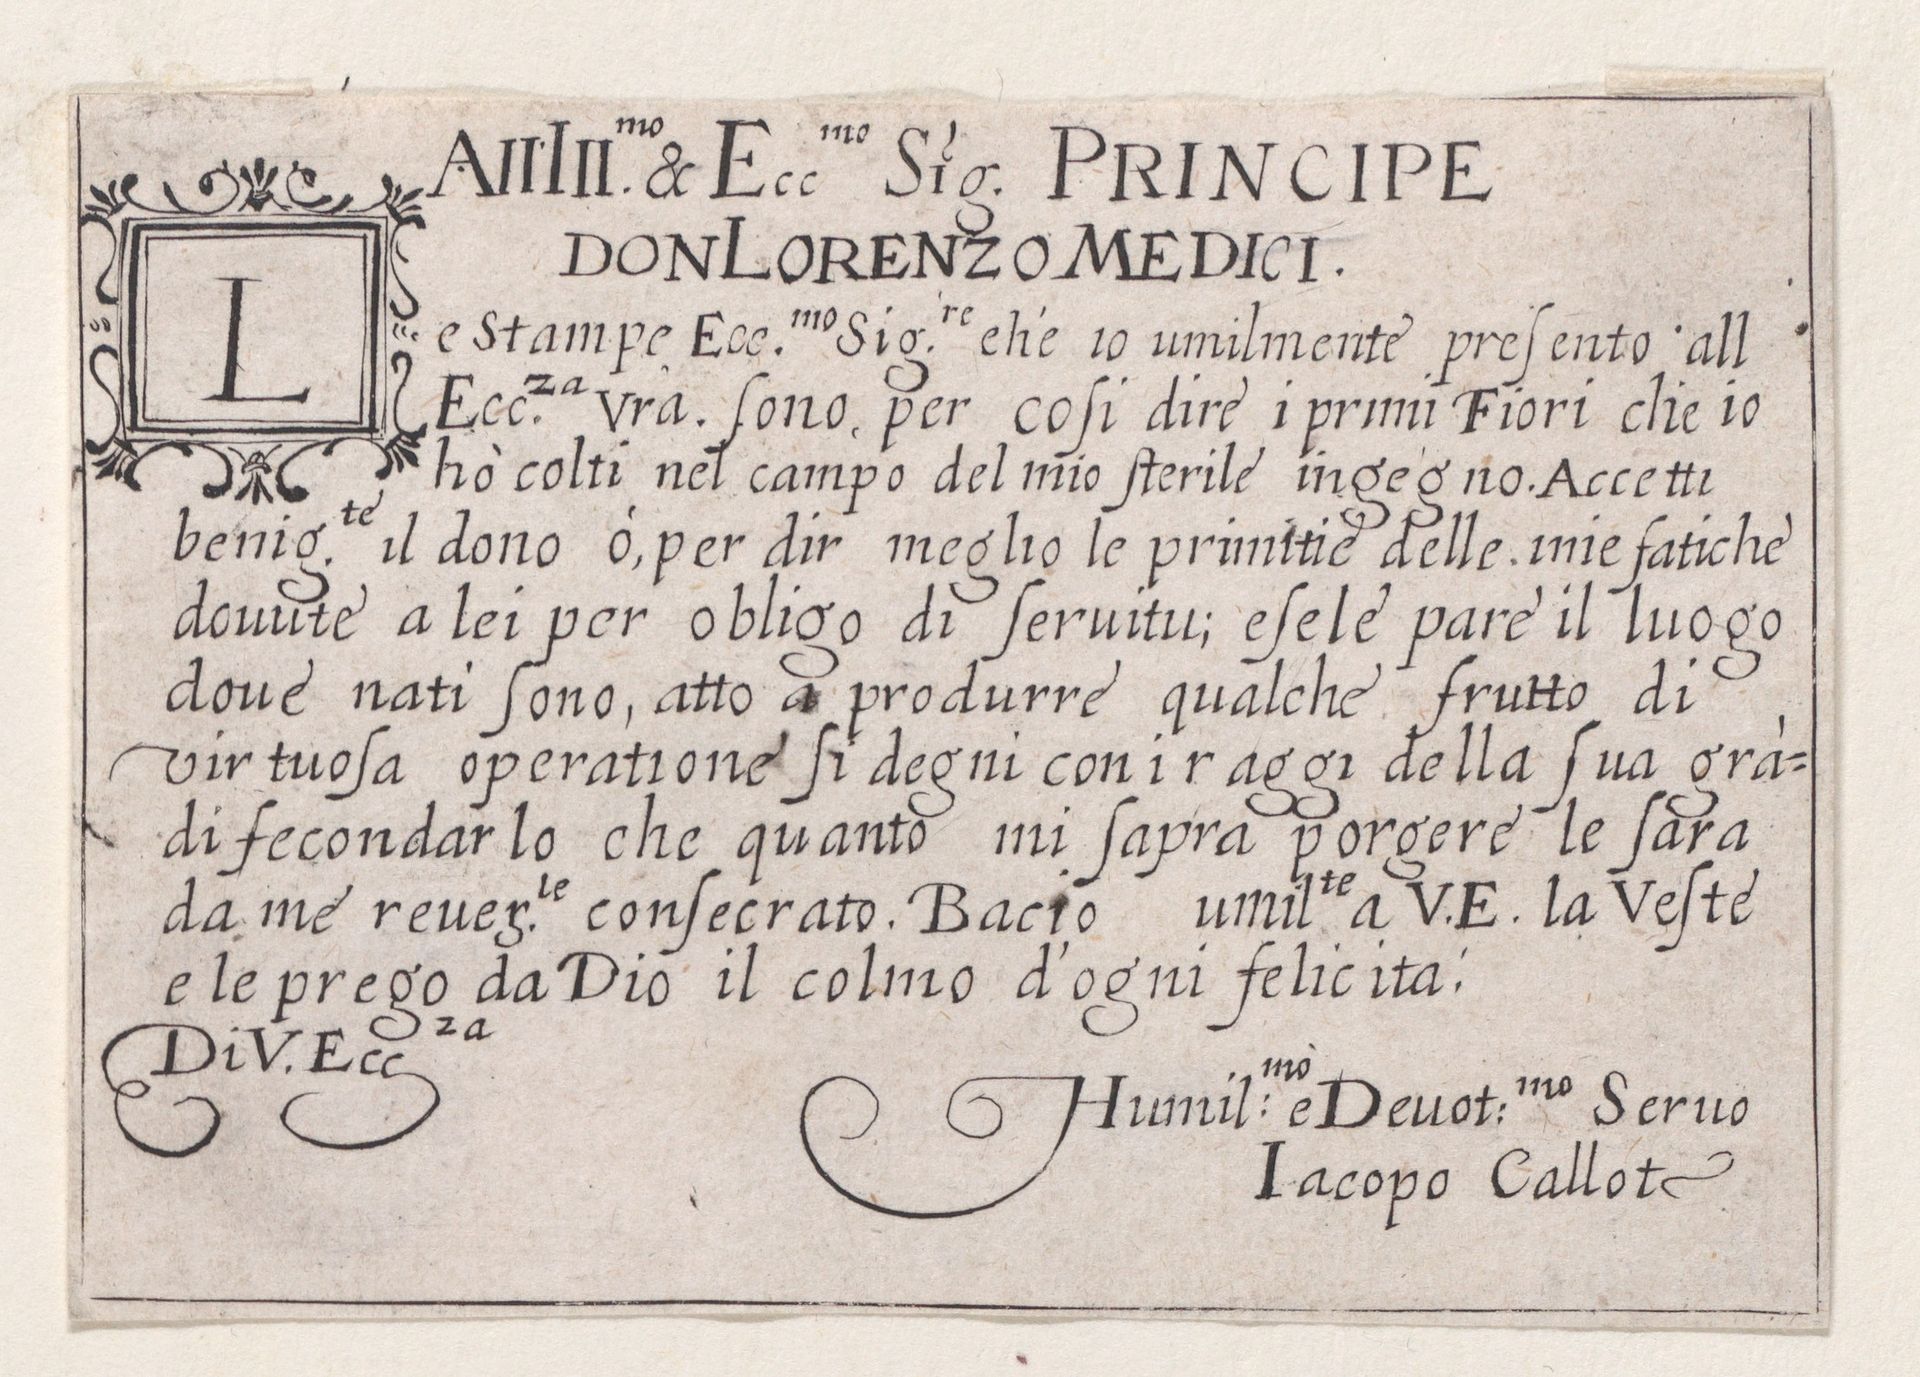 All Ill.mo & Ecc mo Sig. PRINCIPE
DON LORENZO MEDICI.
Le Stampe Ecc.mo Sig.re che io umilmente preſento all
Ecc.za Vra. ſono, per coſi dire i primi Fiori che io
hò colti nel campo del mio ſterile ingegno. Accetti
benig.te il dono ò, per dir meglio le primitie delle mie fatiche
douute a lei per obligo di ſeruitu; e ſe le pare il luogo
doue nati ſono, atto a produrre qualche frutto di
virtuoſa operatione ſi degni con i raggi della ſua gra=
di fecondarlo che quanto mi ſapra porgere le ſara
da me reuer.te conſecrato. Bacio umil te a V.E. la Veſte
e le prego da Dio il colmo d'ogni felicita.
Di V. Ecc za
Humil:mo e Deuot:mo Seruo
Iacopo Callot